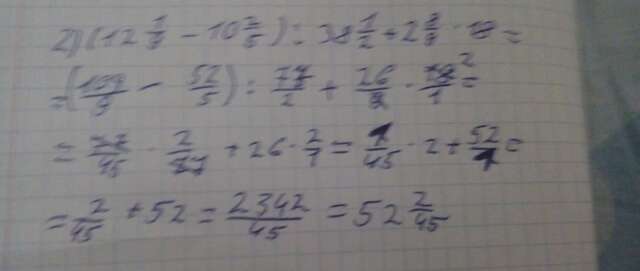 2) (12 1/9 - 10 2/5) : 38 1/2 + 2 8/9 · 18 =
= (109/9 - 52/5) : 77/2 + 26/9 · 18/1 ² =
= 77/45 · 2/77 + 26 · 2/1 = 1/45 · 2 + 52/1 =
= 2/45 + 52 = 2342/45 = 52 2/45